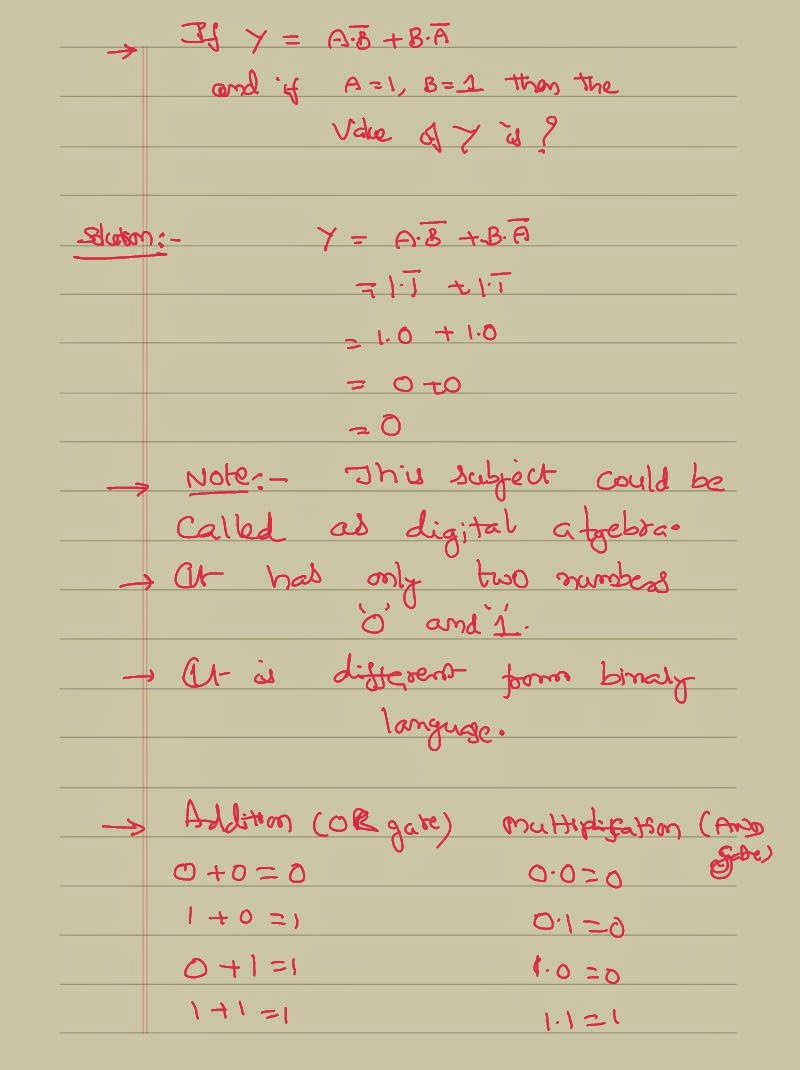 → If Y = A.B̅ + B.A̅
and if A=1, B=1 then the
Value of Y is?
Solution:- Y = A.B̅ + B.A̅
= 1.1̅ + 1.1̅
= 1.0 + 1.0
= 0+0
= 0
→ Note:- This subject could be
Called as digital algebra.
→ It has only two numbers
'0' and '1'.
→ It is different from binary
language.
→ Addition (OR gate) Multiplication (AND gate)
0+0=0 0.0=0
1+0=1 0.1=0
0+1=1 1.0=0
1+1=1 1.1=1